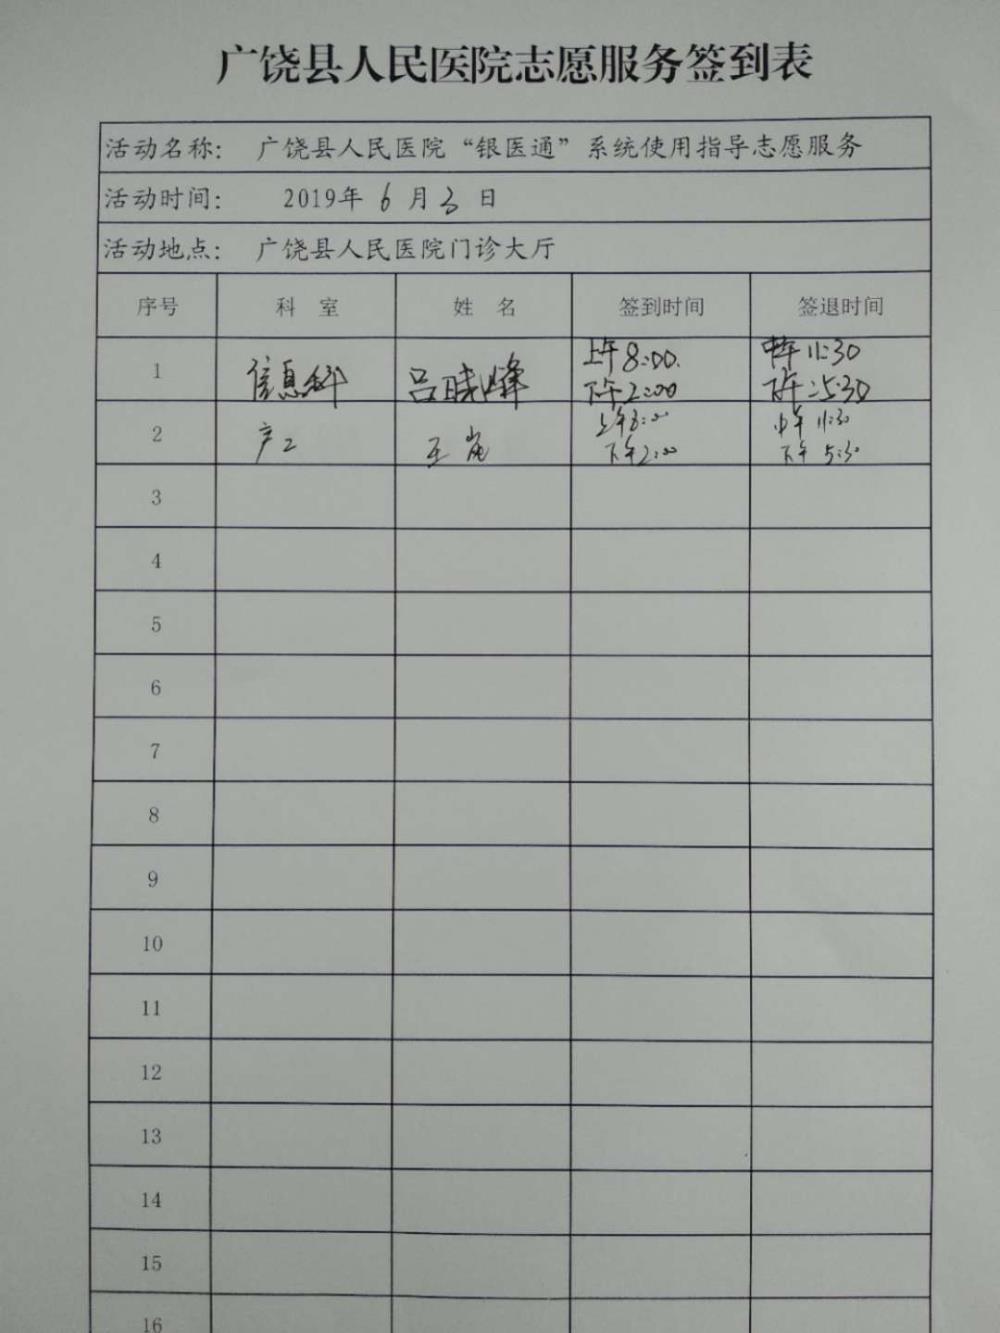 广饶县人民医院志愿服务签到表
活动名称: 广饶县人民医院“银医通”系统使用指导志愿服务
活动时间: 2019年 6 月 3 日
活动地点: 广饶县人民医院门诊大厅
序号 科 室 姓 名 签到时间 签退时间
1 信息科 吕晓峰 上午8:00. 下午2:00 中午11:30 下午:5:30
2 产二 王岚 上午8:00 下午2:00 中午11:30 下午5:30
3
4
5
6
7
8
9
10
11
12
13
14
15
16